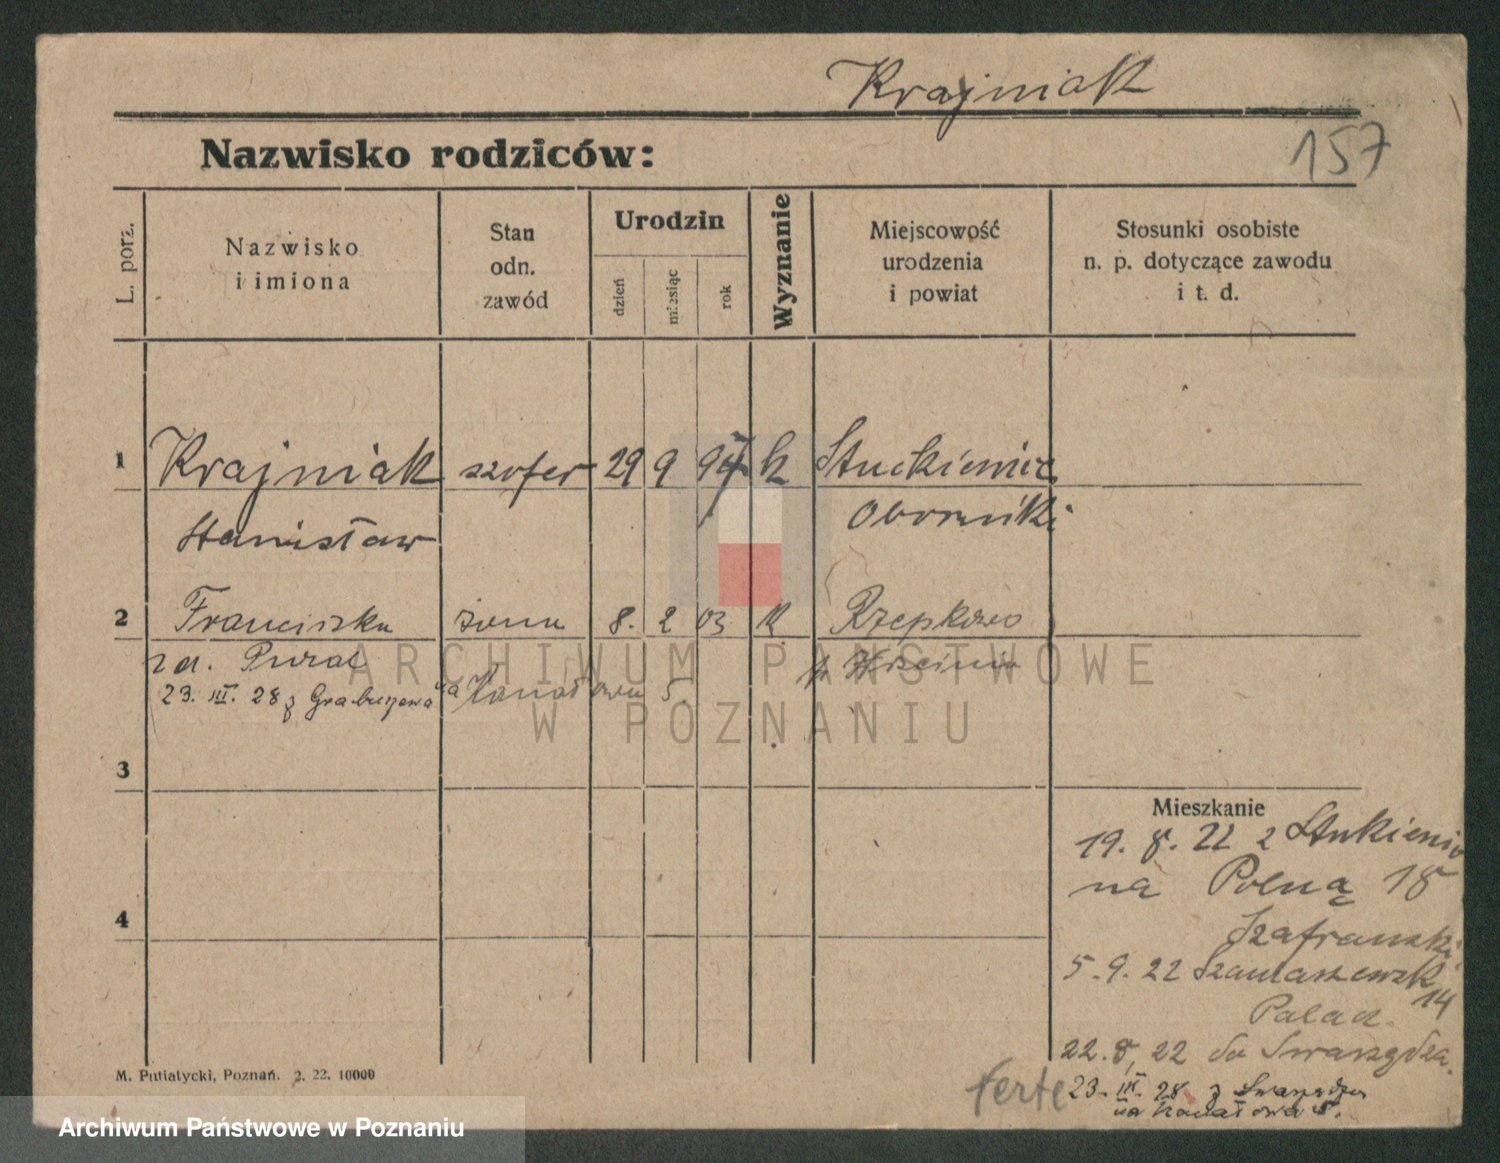 Krajniak
Nazwisko rodziców:
157
L. porz.
Nazwisko
i imiona
Stan
odn.
zawód
Urodzin
dzień
miesiąc
rok
Wyznanie
Miejscowość
urodzenia
i powiat
Stosunki osobiste
n. p. dotyczące zawodu
i t. d.
1 Krajniak szofer 29 9 k
Stanisław Oborniki
2 Franciszka żona 8. 2 03 k
23. III. 28 z na 5
ARCHIWUM PAŃSTWOWE
W POZNANIU
3
Mieszkanie
19. 8. 22 z
na Polną 18
4
Szafranski
5. 9. 22
14
22. 8, 22 do
23. III. 28 z
na Kanałowa 5.
M. Putiatycki, Poznań. 2. 22. 10000
Archiwum Państwowe w Poznaniu